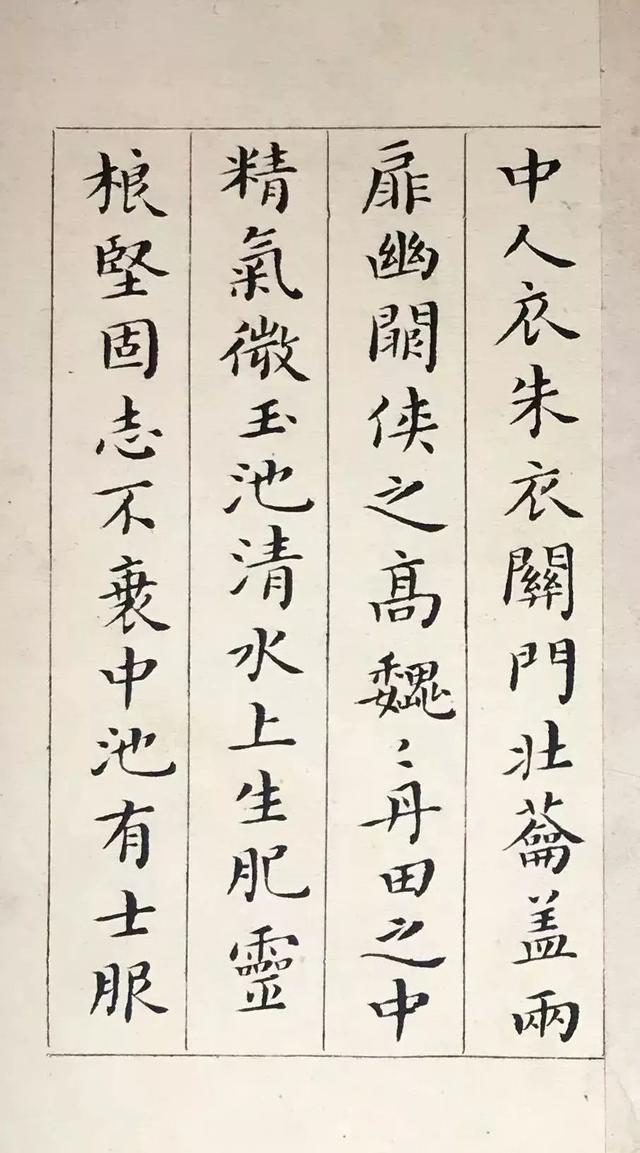 中人衣朱衣關門壯蘥盖兩
扉幽闗俠之高魏〻丹田之中
精氣微玉池清水上生肥靈
根堅固志不衰中池有士服